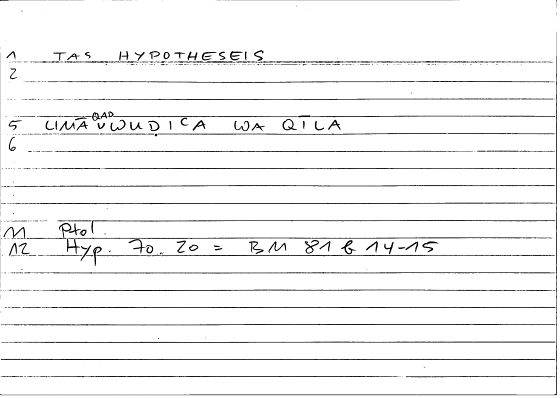 1 TAS HYPOTHESEIS
2
QAD
5 LIMĀ VWUḌICA WA QĪLA
6
11 Ptol.
12 Hyp. 70. 20 = BM 81 b 14-15